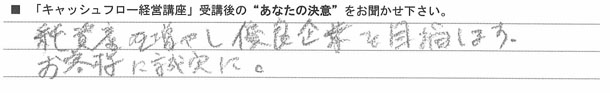 ■ 「キャッシュフロー経営講座」受講後の“あなたの決意”をお聞かせ下さい。
純資産を増やし優良企業を目指します。
お客様に誠実に。